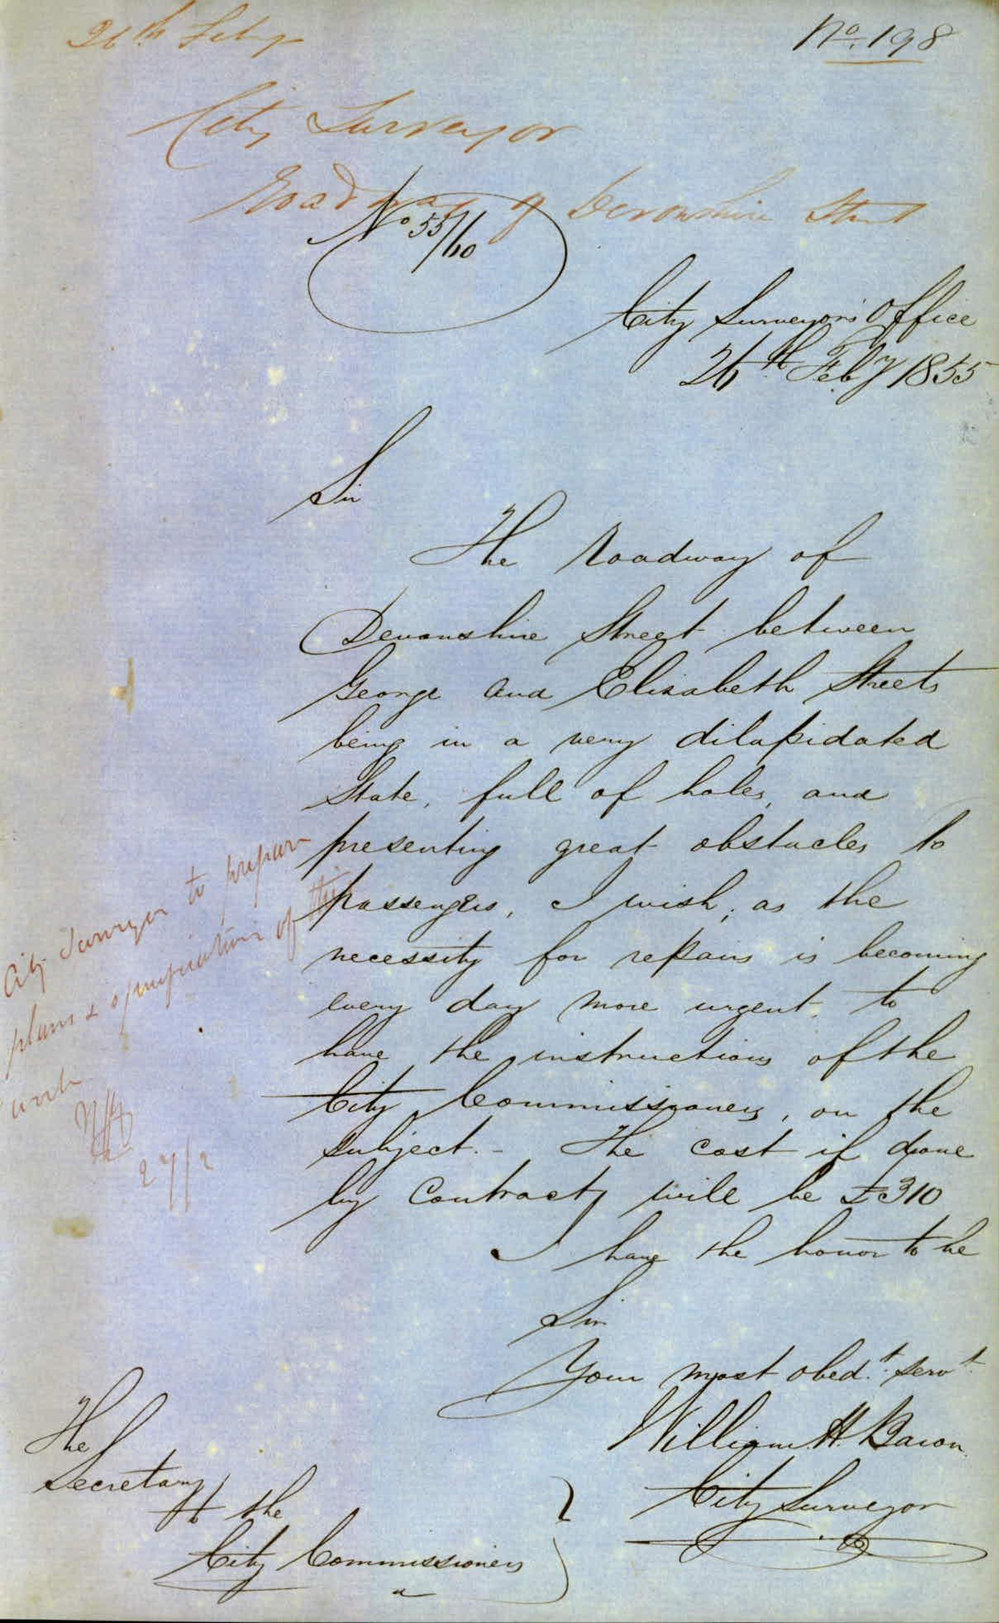 26th Feby
No. 198
City Surveyor
Roadway of Devonshire Street
No 55/60
City Surveyor's Office
26th Feby 1855
Sir
The Roadway of
Devonshire Street between
George and Elizabeth Streets
being in a very dilapidated
State, full of holes, and
presenting great obstacles to
passengers, I wish, as the
necessity for repairs is becoming
every day more urgent, to
have the instructions of the
City Commissioners, on the
subject. - The cost if done
by Contract, will be £310
I have the honor to be
Sir
Your most obedt. servt.
William H. Bacon
City Surveyor
The
Secretary
to the
City Commissioners
City Surveyor to prepare
plans & specification of this
work
27/2